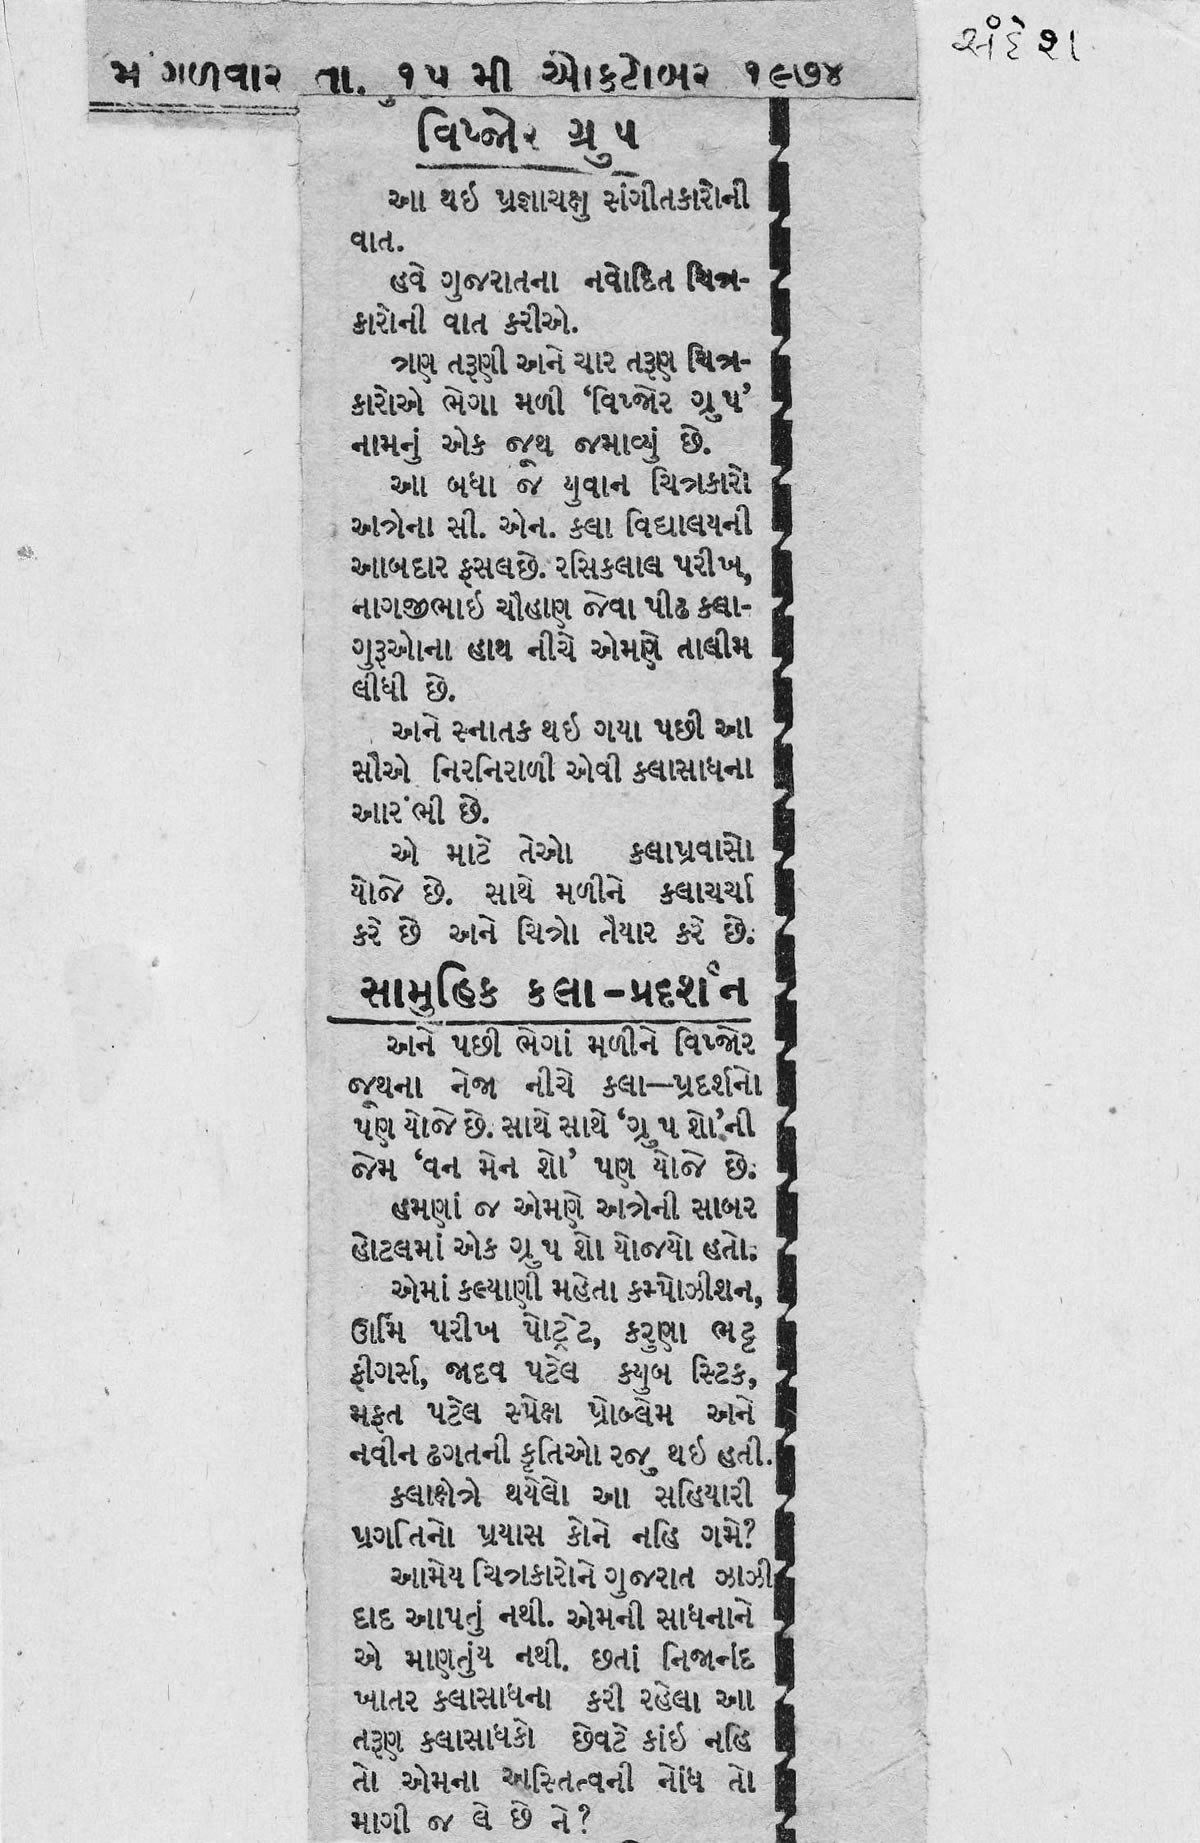 સંદેશ
મંગળવાર તા. ૧૫ મી ઓકટોબર ૧૯૭૪
વિઝ્જોર ગ્રુપ
આ થઇ પ્રજ્ઞાચક્ષુ સંગીતકારોની
વાત.
હવે ગુજરાતના નવોદિત ચિત્ર-
કારોની વાત કરીએ.
ત્રણ તરૂણી અને ચાર તરૂણ ચિત્ર-
કારોએ ભેગા મળી ‘વિઝ્જોર ગ્રુપ’
નામનું એક જૂથ જમાવ્યું છે.
આ બધા જ યુવાન ચિત્રકારો
અત્રેના સી. એન. કલા વિદ્યાલયની
આબદાર ફસલછે. રસિકલાલ પરીખ,
નાગજીભાઇ ચૌહાણ જેવા પીઢ કલા-
ગુરૂઓના હાથ નીચે એમણે તાલીમ
લીધી છે.
અને સ્નાતક થઇ ગયા પછી આ
સૌએ નિરનિરાળી એવી કલાસાધના
આરંભી છે.
એ માટે તેઓ કલાપ્રવાસો
યોજે છે. સાથે મળીને કલાચર્ચા
કરે છે અને ચિત્રો તૈયાર કરે છે.
સામુહિક કલા-પ્રદર્શન
અને પછી ભેગાં મળીને વિઝ્જોર
જૂથના નેજા નીચે કલા—પ્રદર્શનો
પણ યોજે છે. સાથે સાથે ‘ગ્રુપ શો’ની
જેમ ‘વન મેન શો’ પણ યોજે છે.
હમણાં જ એમણે અત્રેની સાબર
હોટલમાં એક ગ્રુપ શો યોજયો હતો.
એમાં કલ્યાણી મહેતા કમ્પોઝીશન,
ઊર્મિ પરીખ પોર્ટ્રેટ, કરુણા ભટ્ટ
ફીગર્સ, જાદવ પટેલ કયુબ સ્ટિક,
મફત પટેલ સ્પેક્ષ પ્રોબ્લેમ અને
નવીન ઢગતની કૃતિઓ રજુ થઇ હતી.
કલાક્ષેત્રે થયેલો આ સહિયારી
પ્રગતિનો પ્રયાસ કોને નહિ ગમે?
આમેય ચિત્રકારોને ગુજરાત ઝાઝી
દાદ આપતું નથી. એમની સાધનાને
એ માણતુંય નથી. છતાં નિજાનંદ
ખાતર કલાસાધના કરી રહેલા આ
તરૂણ કલાસાધકો છેવટે કાંઇ નહિ
તો એમના અસ્તિત્વની નોંધ તો
માગી જ લે છે ને?